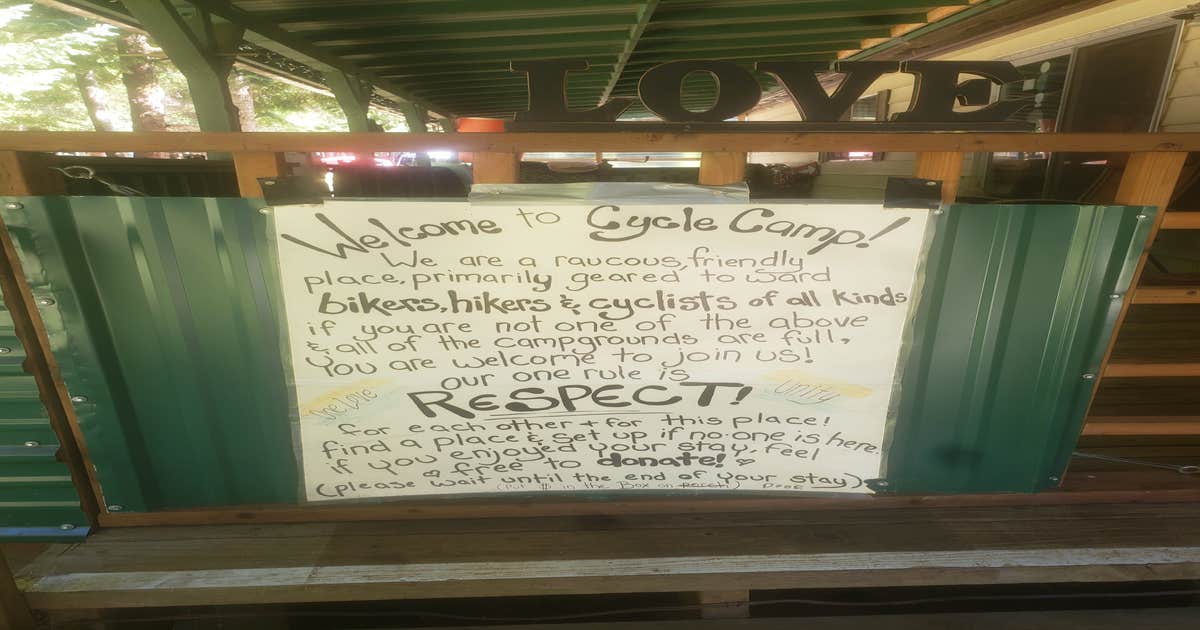 LOVE
Welcome to Cycle Camp!
We are a raucous, friendly
place, primarily geared to ward
bikers, hikers & cyclists of all kinds
if you are not one of the above
& all of the campgrounds are full,
You are welcome to join us!
our one rule is
One Love RESPECT! Unity
for each other + for this place!
find a place & set up if no one is here.
if you enjoyed your stay, feel
free to donate!
(please wait until the end of your stay)
(Put $ in the Box on